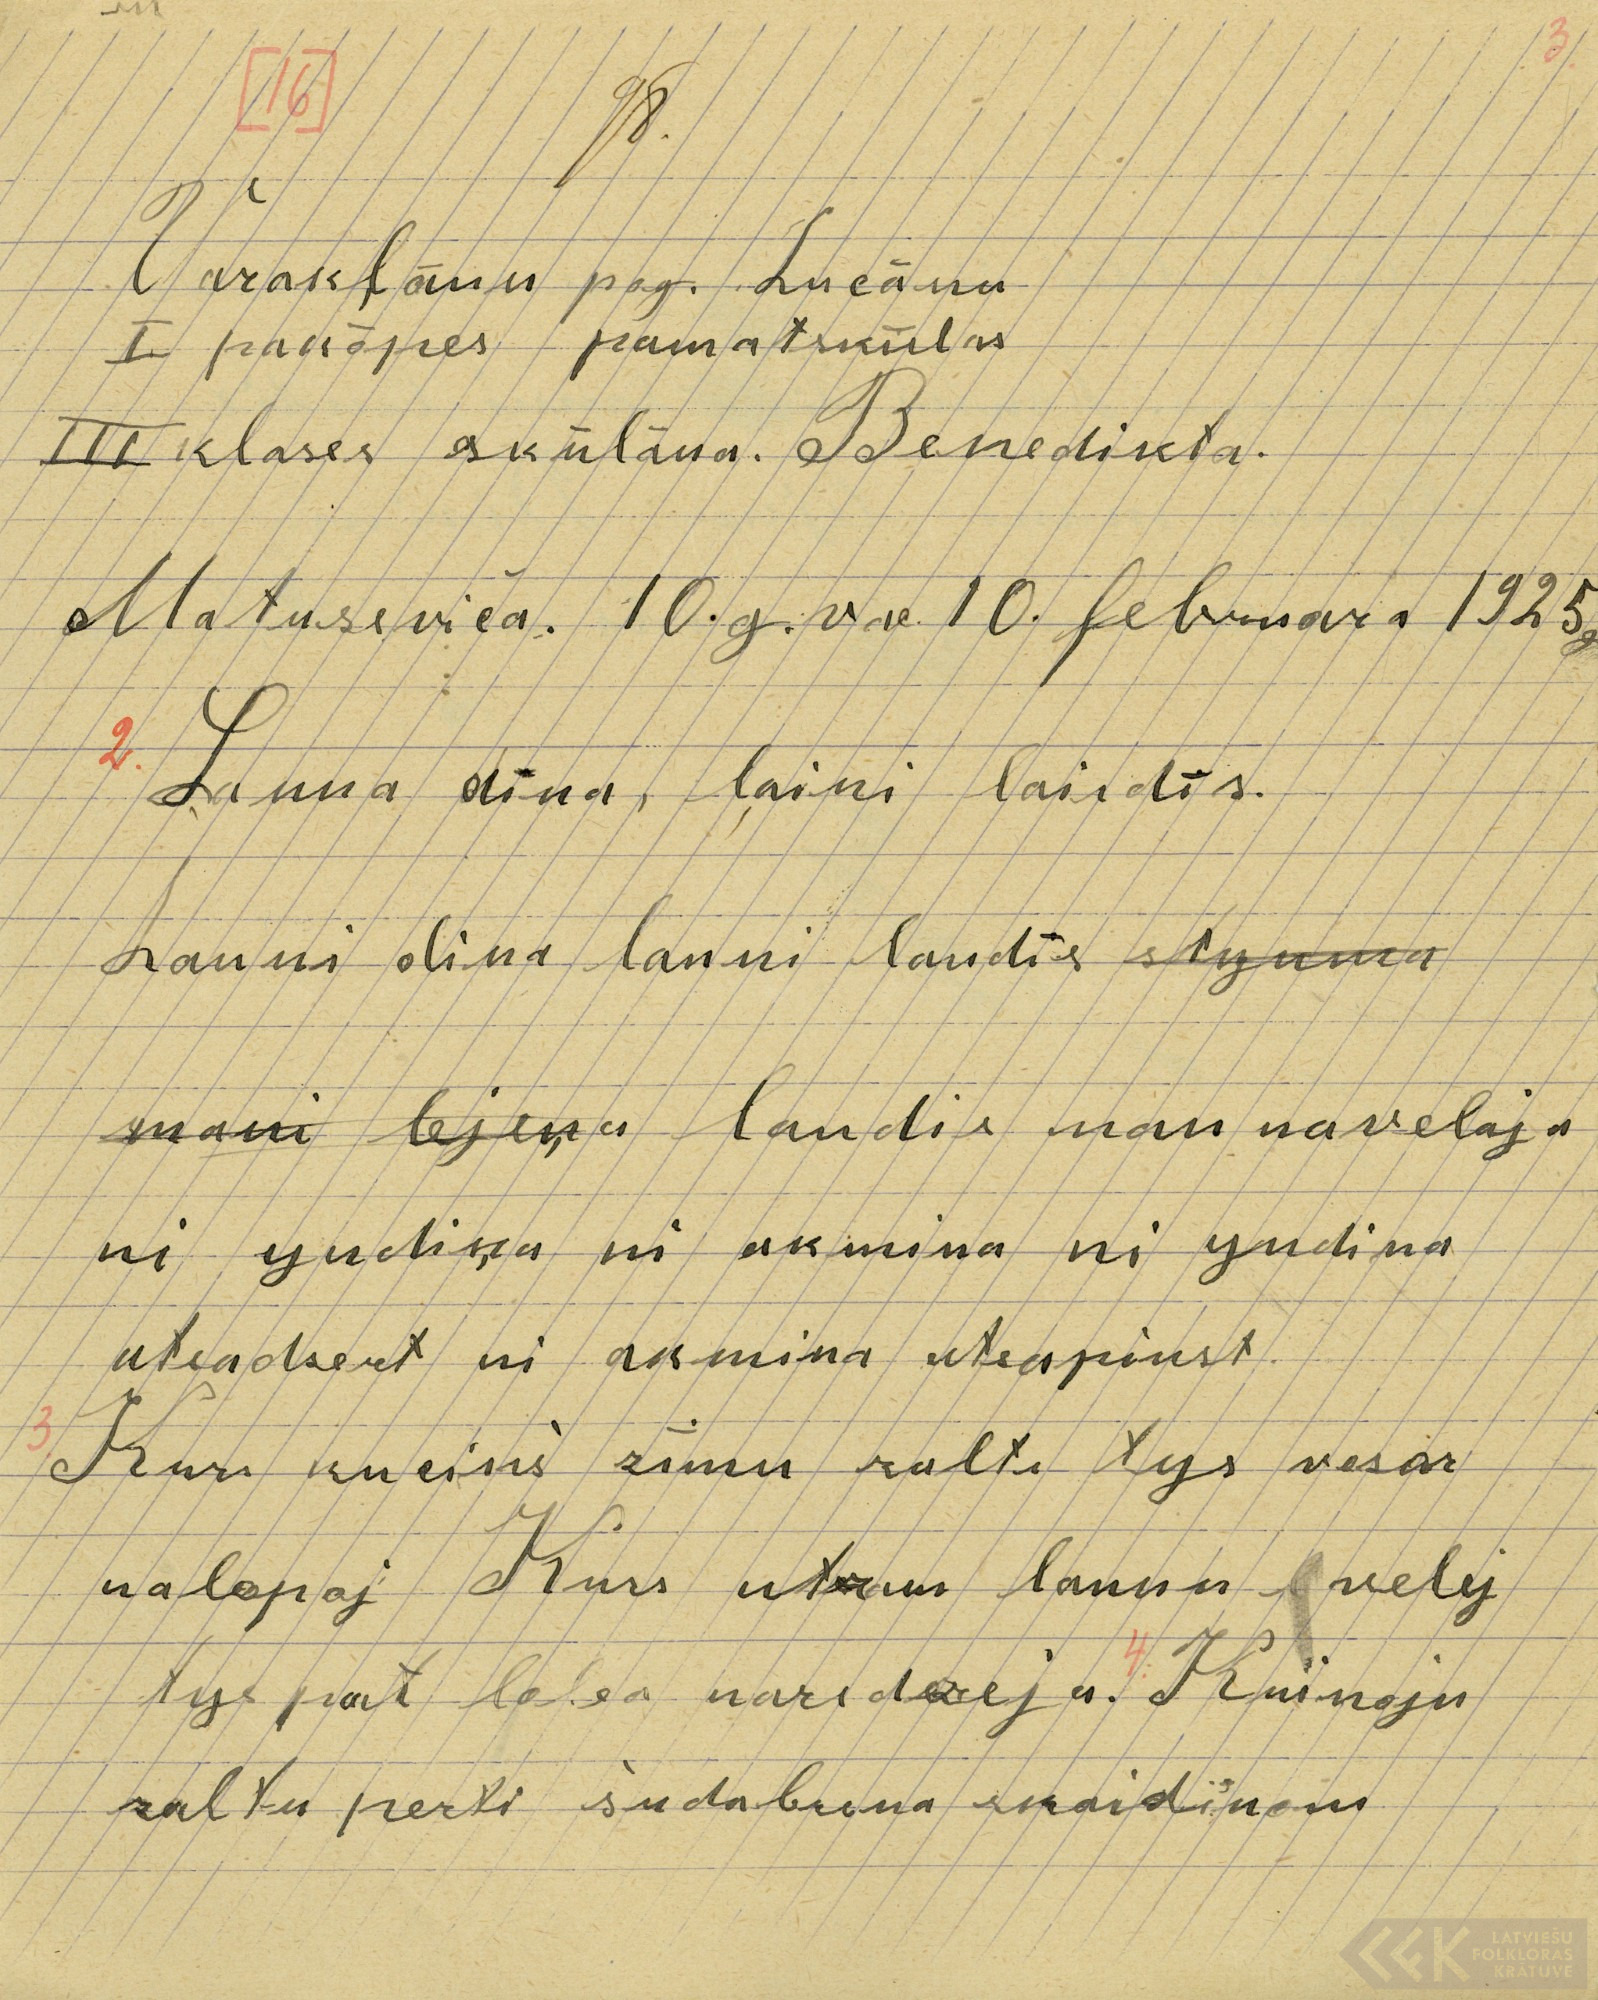 [16] 98. 3.
Varakļānu pog. Lucānu
I pakōpes pamatskūlas
III klases skūlāna. Benedikta.
Matuseviča. 10. g. vac 10. februara 1925 g
2. Launa dīna, ļaini laixdīs.
Launi dina launi laudīs stynma
mani bejeņa laudis man navelāja
ni yudiņa ni akmina ni yudina
utsadzert ni akmina utsapiust.
3. Kurs kucinš zīmu zalts tys vosar
nalopoj Kurs utram launu velej
tys pat loba naredzeja. 4. Kuinoju
zaltu perti sudabruna skaidiinom
LATVIEŠU
FOLKLORAS
KRĀTUVE